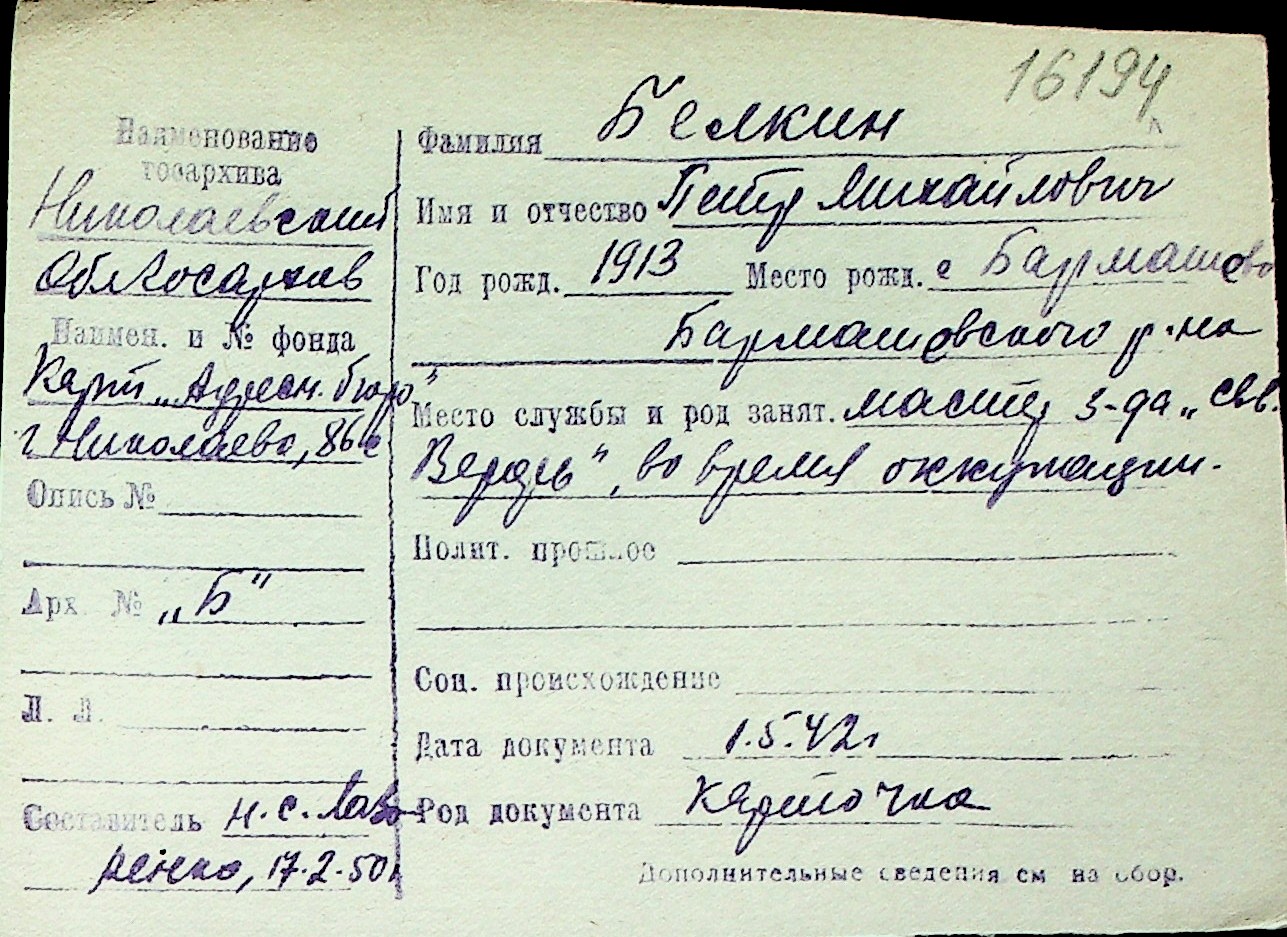 16194
Наименование
госархива
Николаевский
Облгосархив
Наимен. и № фонда
Карт „Адресн. бюро"
г. Николаева, 86с
Опись №
Арх. № „Б"
Л. Л.
Составитель Н. С. Лавренко, 17.2.50г
Фамилия Белкин
Имя и отчество Петр Михайлович
Год рожд. 1913 Место рожд. с Бармашово
Бармашовского р-на
Место службы и род занят. мастер з-да „
Верфь", во время оккупации.
Полит. прошлое
Соц. происхождение
Дата документа 1.5.42г
Род документа карточка
Дополнительные сведения см на обор.